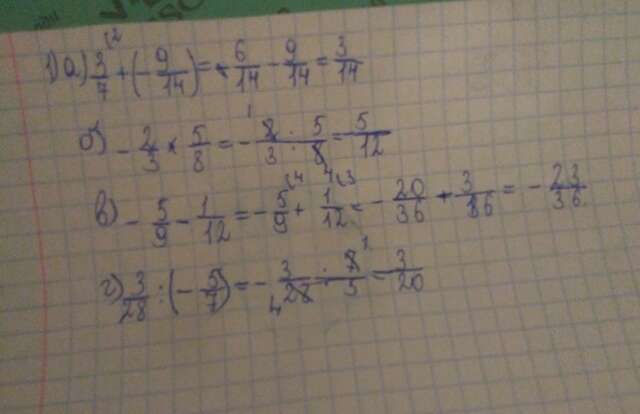 1) а) 3/7 + (- 9/14) = - 6/14 - 9/14 = 3/14
б) - 2/3 × 5/8 = - 2 · 5 / 3 · 8 = 5/12
в) - 5/9 - 1/12 = - 5/9 + 1/12 = - 20/36 + 3/36 = - 23/36
г) 3/28 : (- 5/7) = - 3/28 · 7/5 = 3/20